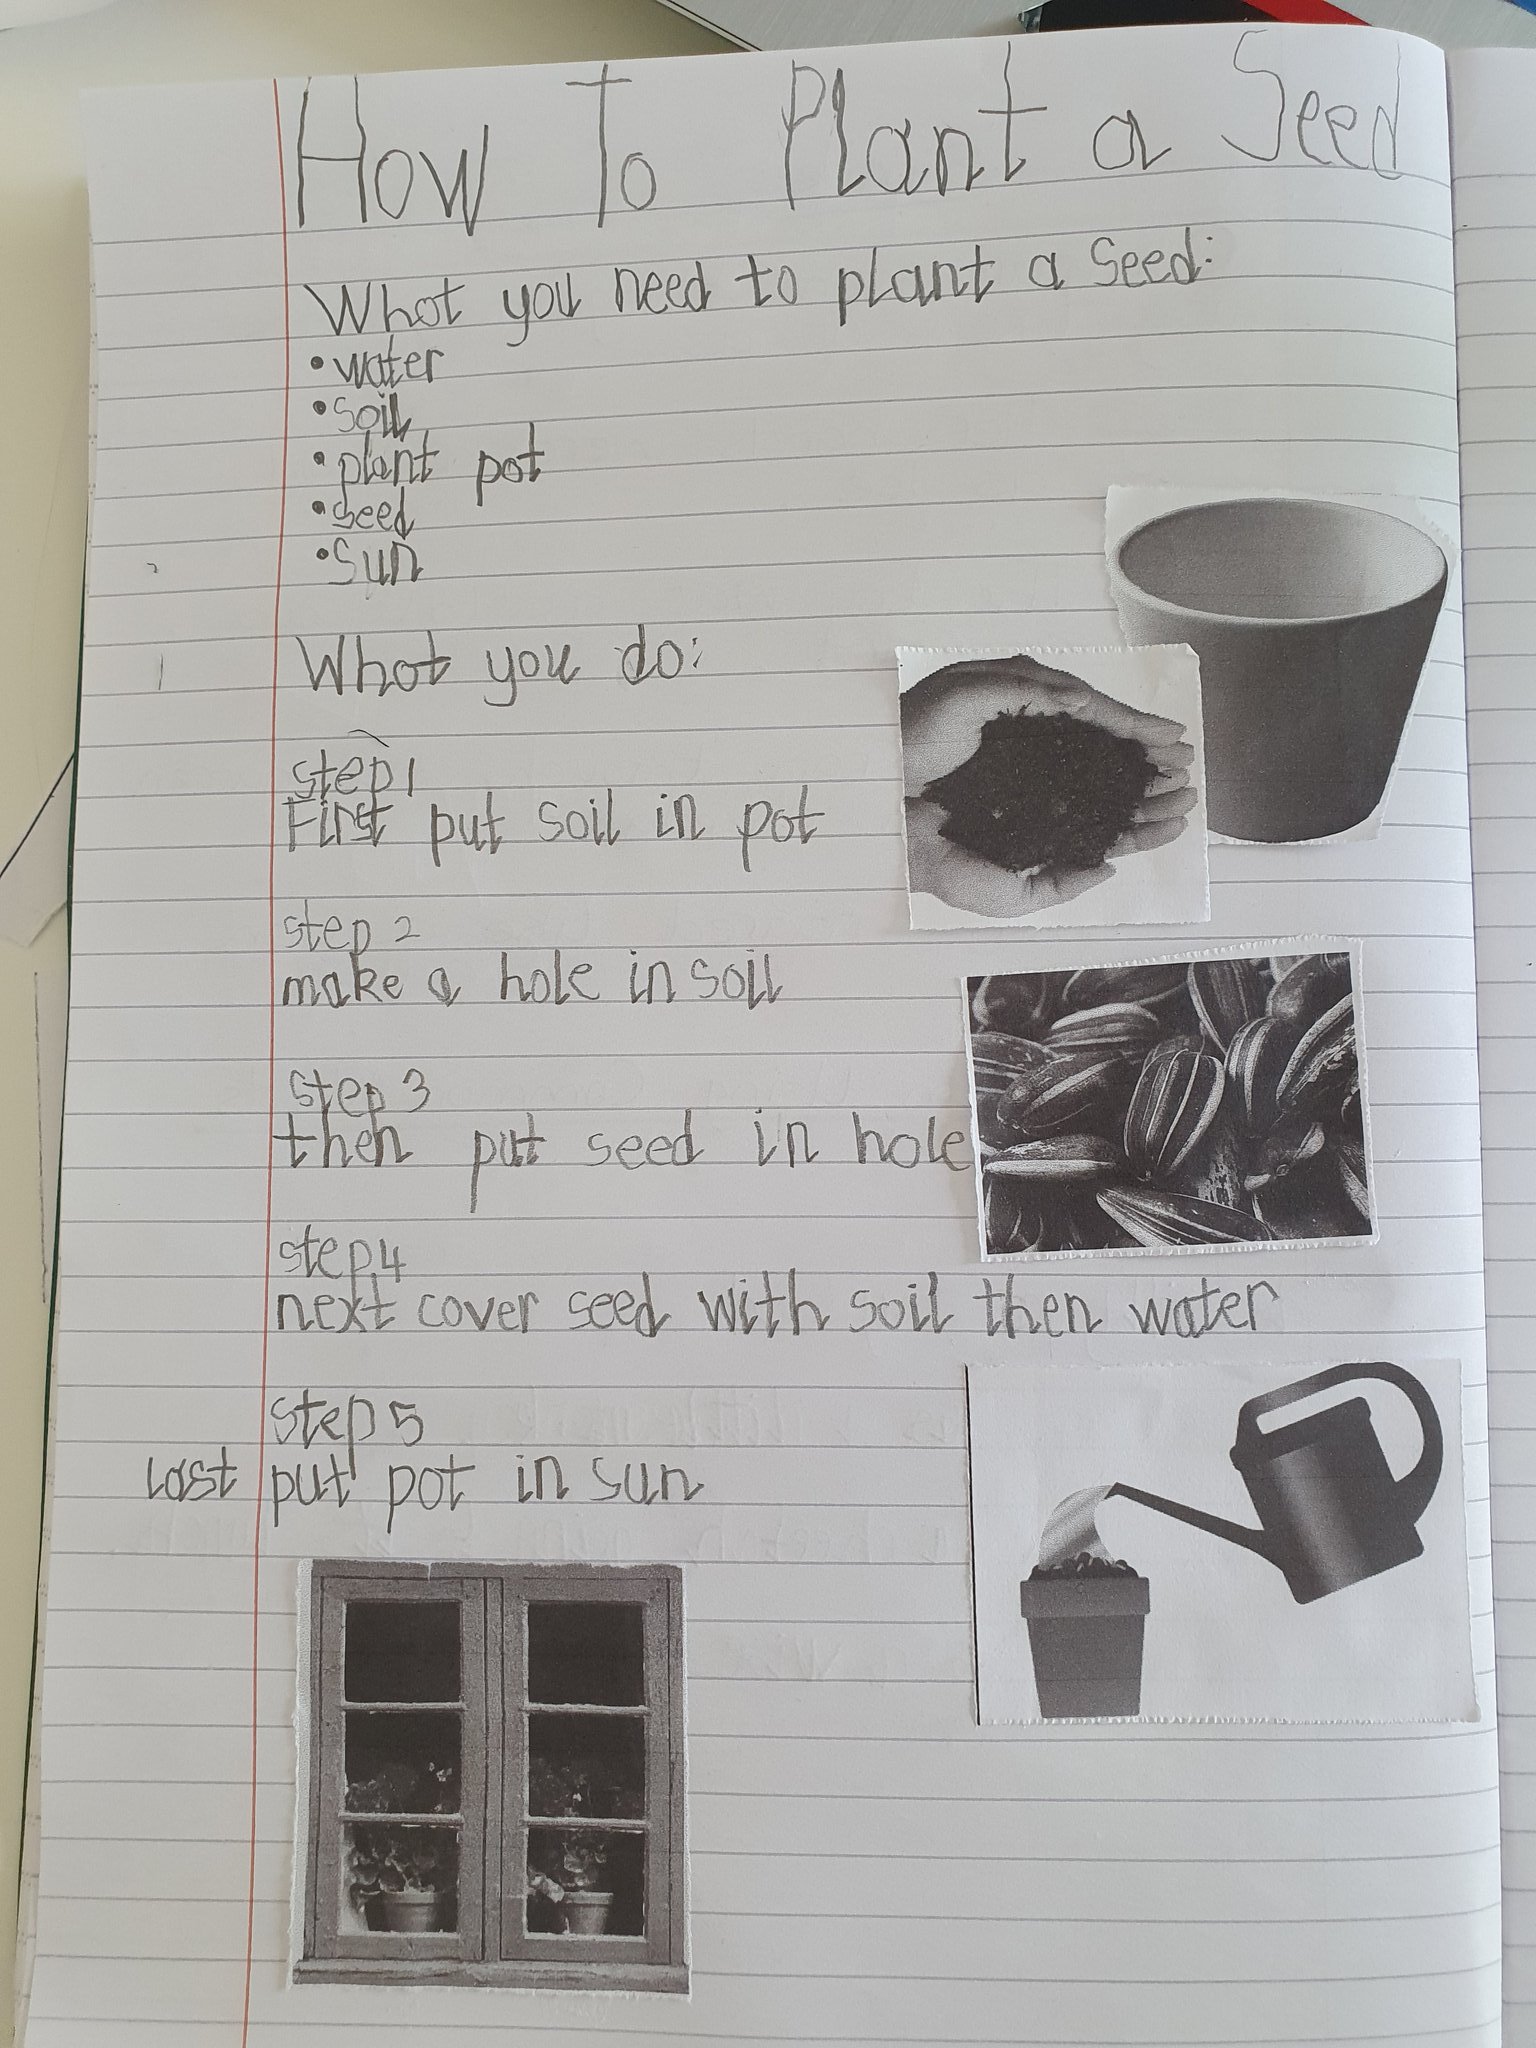 How To Plant a Seed
What you need to plant a Seed:
• water
• soil
• plant pot
• seed
• sun
What you do:
step 1
First put soil in pot
step 2
make a hole in soil
step 3
then put seed in hole
step 4
next cover seed with soil then water
step 5
Last put pot in sun